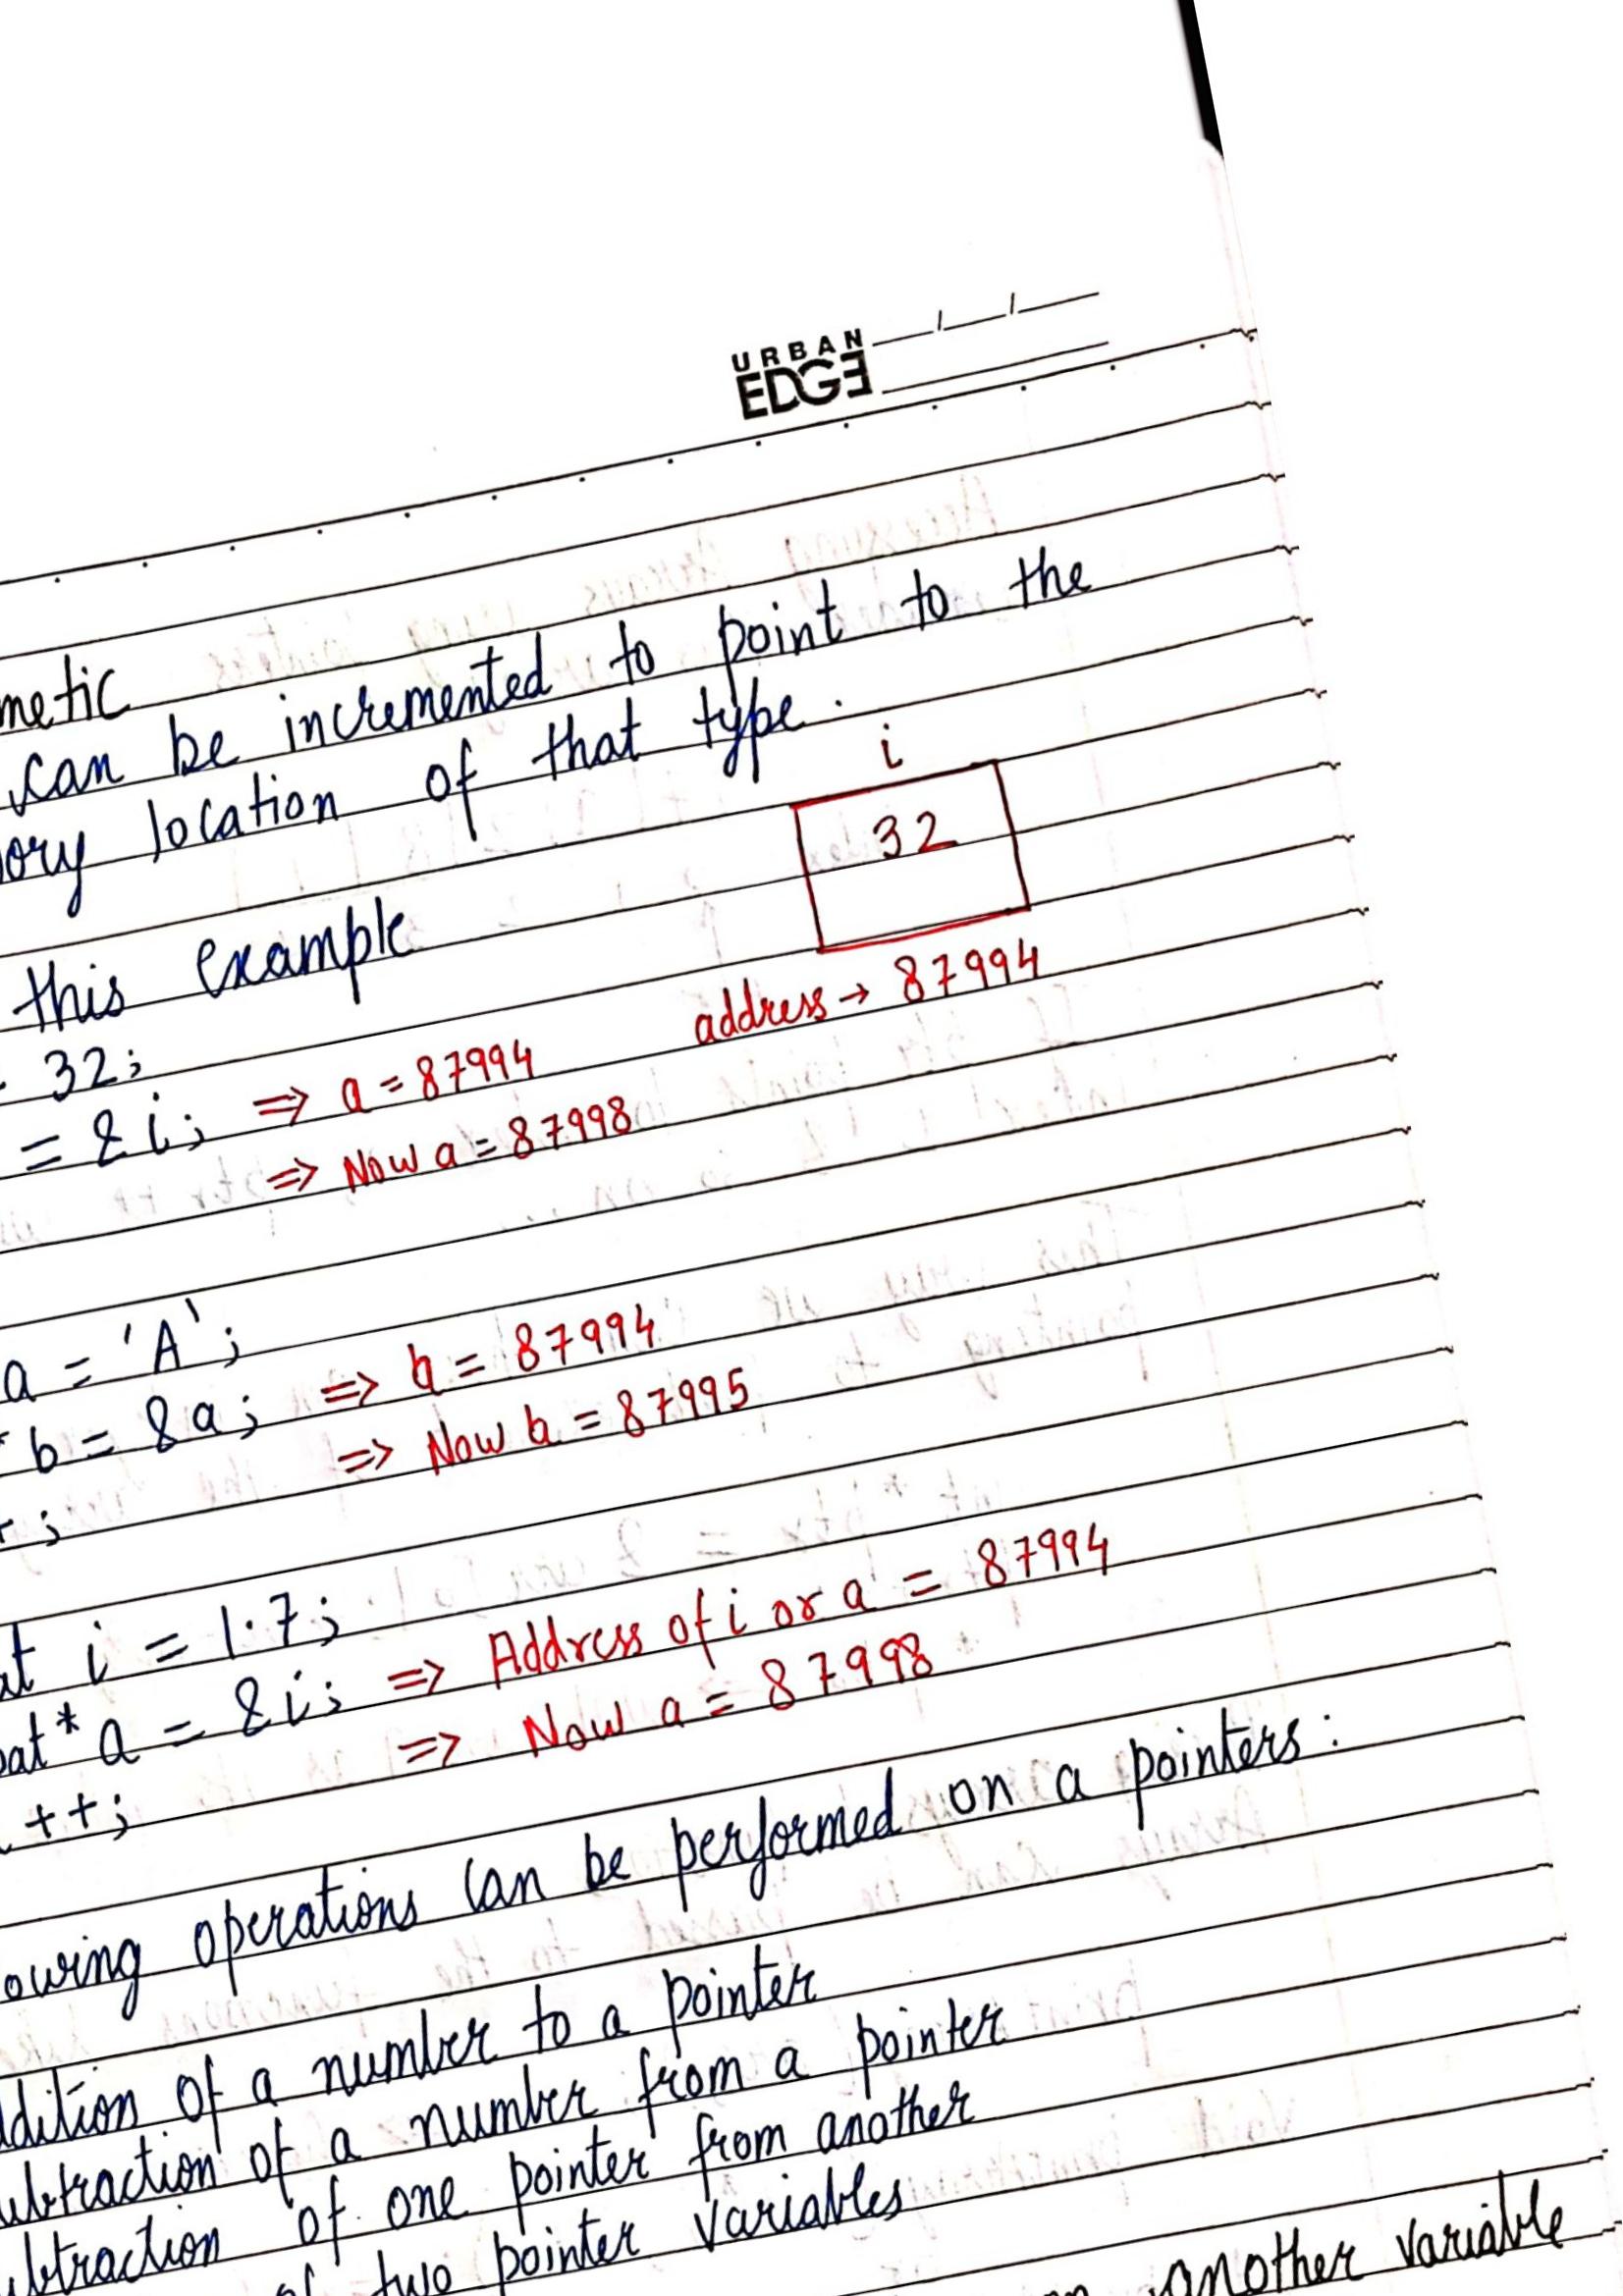 URBAN
EDGE
metic
can be incremented to point to the
ory location of that type.
i
32
this example
address → 87994
32;
= &i; => a = 87994
=> Now a = 87998
a = 'A';
* b = &a; => b = 87994
=> Now b = 87995
+;
at i = 1.7;
oat* a = &i; => Address of i or a = 87994
=> Now a = 87998
++;
owing operations can be performed on a pointers:
ddition of a number to a pointer
ubtraction of a number from a pointer
ubtraction of one pointer from another
of two pointer variables
another variable